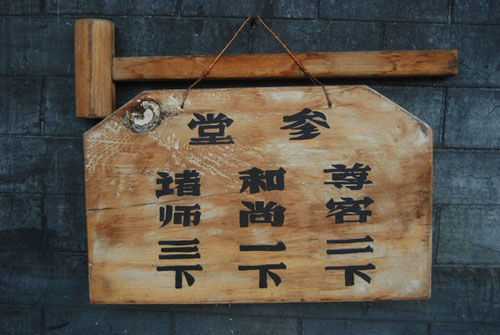 参堂
尊客二下
和尚一下
诸师三下